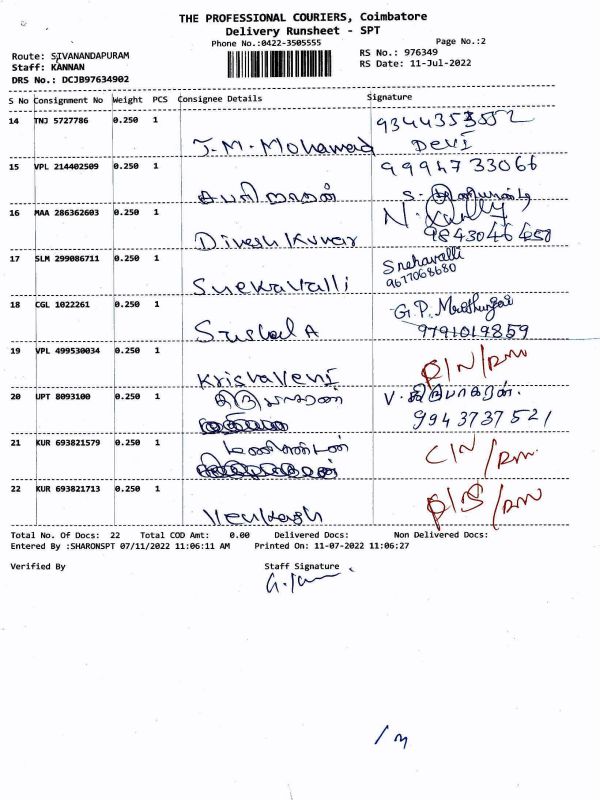 THE PROFESSIONAL COURIERS, Coimbatore
Delivery Runsheet - SPT
Phone No.:0422-3505555
Page No.:2
Route: SIVANANDAPURAM
RS No.: 976349
Staff: KANNAN
RS Date: 11-Jul-2022
DRS No.: DCJB97634902
S No Consignment No Weight PCS Consignee Details Signature
14 TNJ 5727786 0.250 1 9344353552
J.M. Mohamed Devi
15 VPL 214402509 0.250 1 9994733066
சபரிநாதன் S.
16 MAA 286362603 0.250 1 N.
Dinesh Kumar 9843046450
17 SLM 299086711 0.250 1 Snehavalli
Snekavalli 9677068680
18 CGL 1022261 0.250 1 G.P.
9791019859
19 VPL 499530034 0.250 1
Krisnaveni
20 UPT 8093100 0.250 1 V.
9943737521
21 KUR 693821579 0.250 1 C/N/
22 KUR 693821713 0.250 1
Venkatesh
Total No. Of Docs: 22 Total COD Amt: 0.00 Delivered Docs: Non Delivered Docs:
Entered By :SHARONSPT 07/11/2022 11:06:11 AM Printed On: 11-07-2022 11:06:27
Verified By Staff Signature